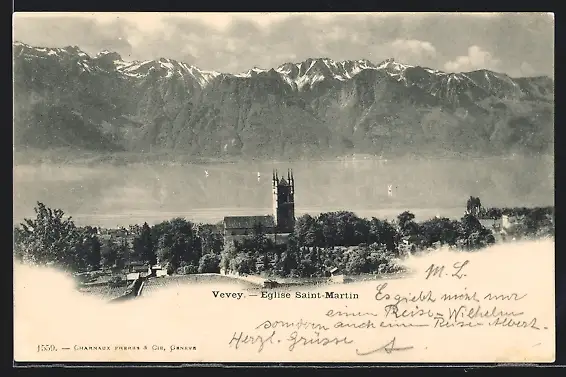 Vevey. — Eglise Saint-Martin
M. L.
Es giebt nicht nur
einen Reise-Wilhelm
sondern auch einen Reise Albert.
Herzl. Grüsse
1559. — CHARNAUX FRÈRES & Cie, GENÈVE